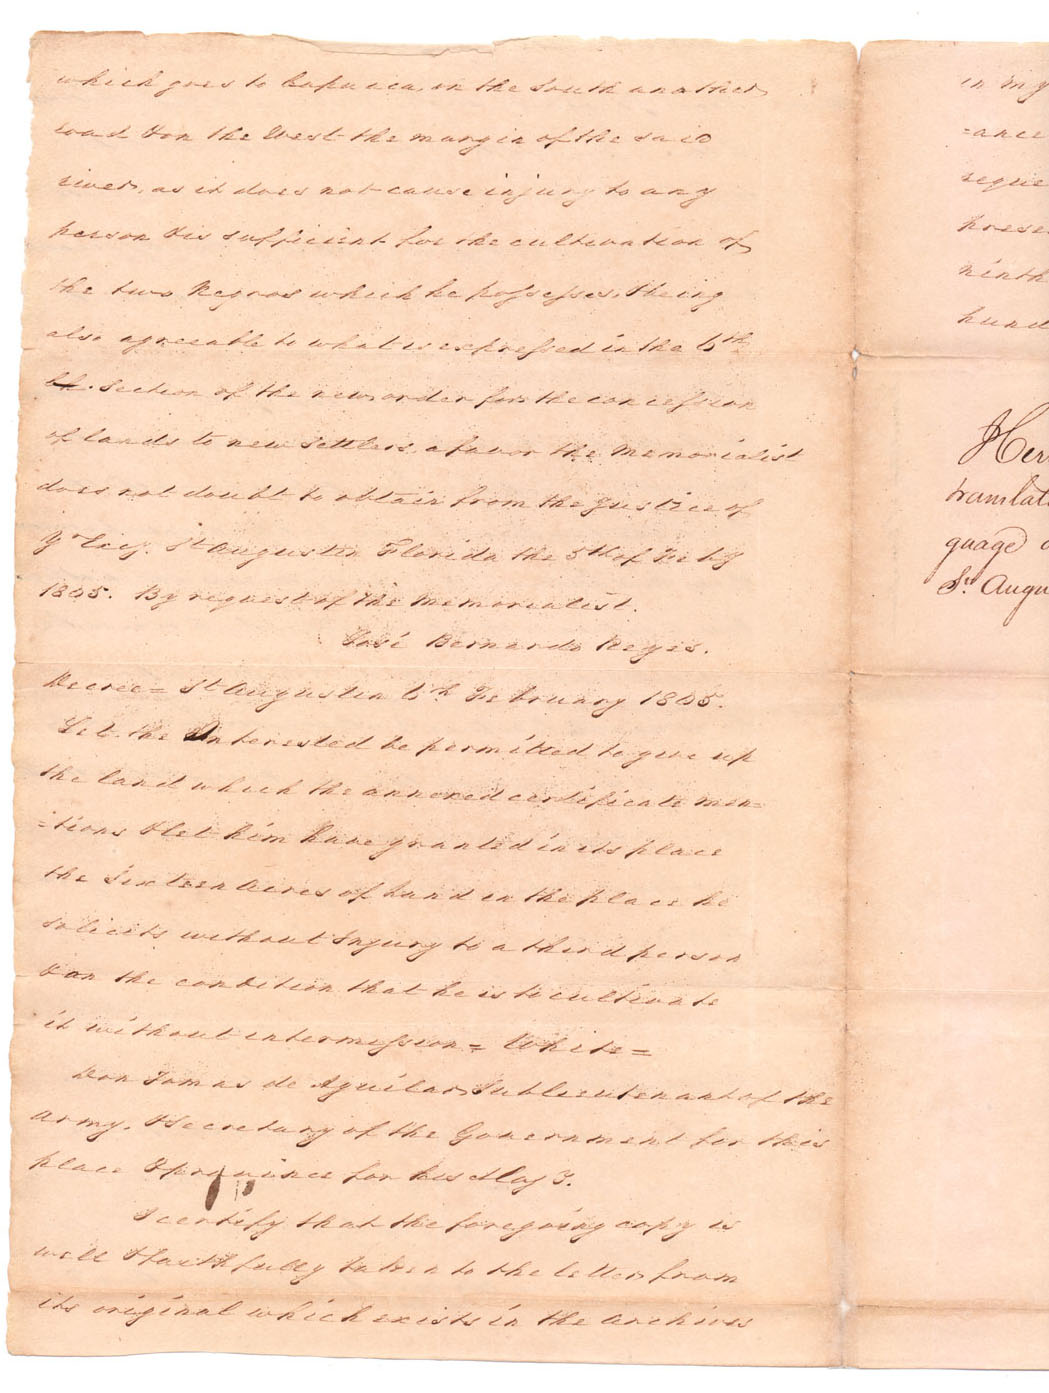 which goes to Capuaca, on the South another
road & on the West the margin of the said
river, as it does not cause injury to any
person & is sufficient for the cultivation of
the two Negros which he possesses, & being
also agreeable to what is expressed in the 6th
Section of the new order for the concession
of lands to new settlers, a favor the Memorialist
does not doubt to obtain from the Justice of
Yr Excy. St Augustin Florida the 5th of Feby
1805. By request of the Memorialist.
José Bernardo Reyes.
Decree = St Augustin 6th February 1805.
Let the Interested be permitted to give up
the land which the annexed certificate men=
=tions & let him have granted in its place
the Sixteen Acres of Land in the place he
solicits without Injury to a third person
& on the condition that he is to cultivate
it without intermission = White =
Don Tomas de Aguilar, Sublieutenant of the
Army, & Secretary of the Government for this
place & province for his Maj
I certify that the foregoing copy is
well & faithfully taken to the letter from
its original which exists in the archives
in my
=ance
reque
prese
ninth
hund
Her
translat
guage
St. Augu